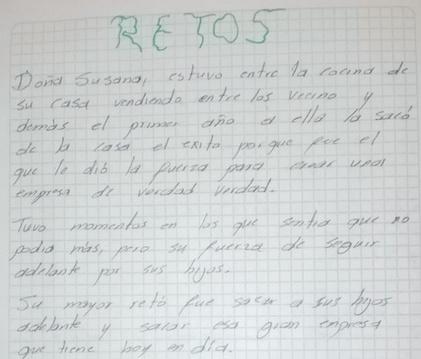 RETOS
Doña Susana, estuvo entre la cocina de
su casa vendiendo entre los vecino y
demás el primer año a ella la sacó
de la casa el exito porque fue el
que le dió la fuerza para crear una
empresa de verdad verdad.
Tuvo momentos en los que sentia que no
podia más, pero su fuerza de seguir
adelante por sus hijos.
Su mayor reto fue sacar a sus hijos
adelante y sacar esa gran empresa
que tiene hoy en día.